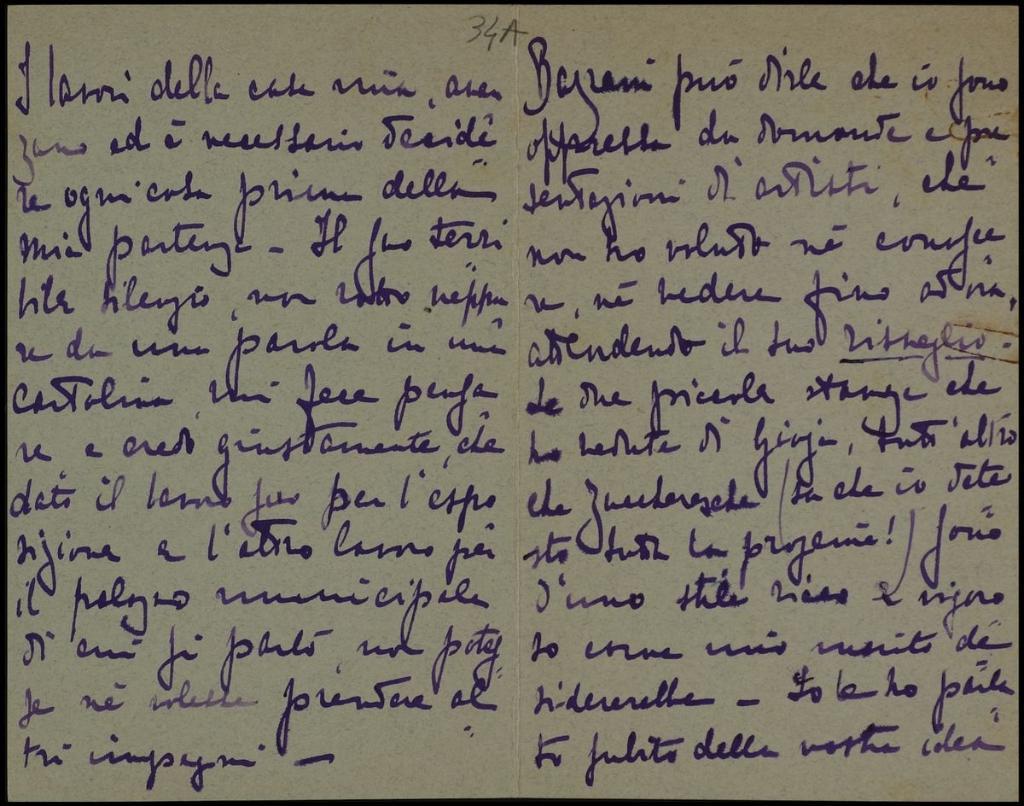 34A
I lavori della casa mia, avan
zano ed è necessario decide
re ogni cosa prima della
mia partenza – Il suo terri
bile silenzio, non rotto neppu
re da una parola in una
cartolina, mi fece pensa
re, e credo giustamente, che
dato il lavoro suo per l'espo
sizione e l'altro lavoro per
il palazzo municipale
di cui si parlò, non potes
se nè volesse prendere al
tri impegni –
Bazzani può dirle che io sono
oppressa da domande e pre
sentazioni di artisti, che
non ho voluto nè conosce
re, nè vedere fino ad ora,
attendendo il suo risveglio.
Le due piccole stanze che
ho vedute di Gioja, tutt'altro
che Zuccheresche (sa che io dete
sto tutta la progenie!) sono
d'uno stile ricco e vigoro
so come mio marito de
sidererebbe – Io le ho parla
to subito della vostra idea